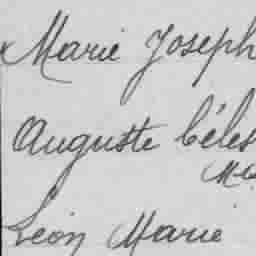 Marie Joseph
Auguste Céles
Léon Marie